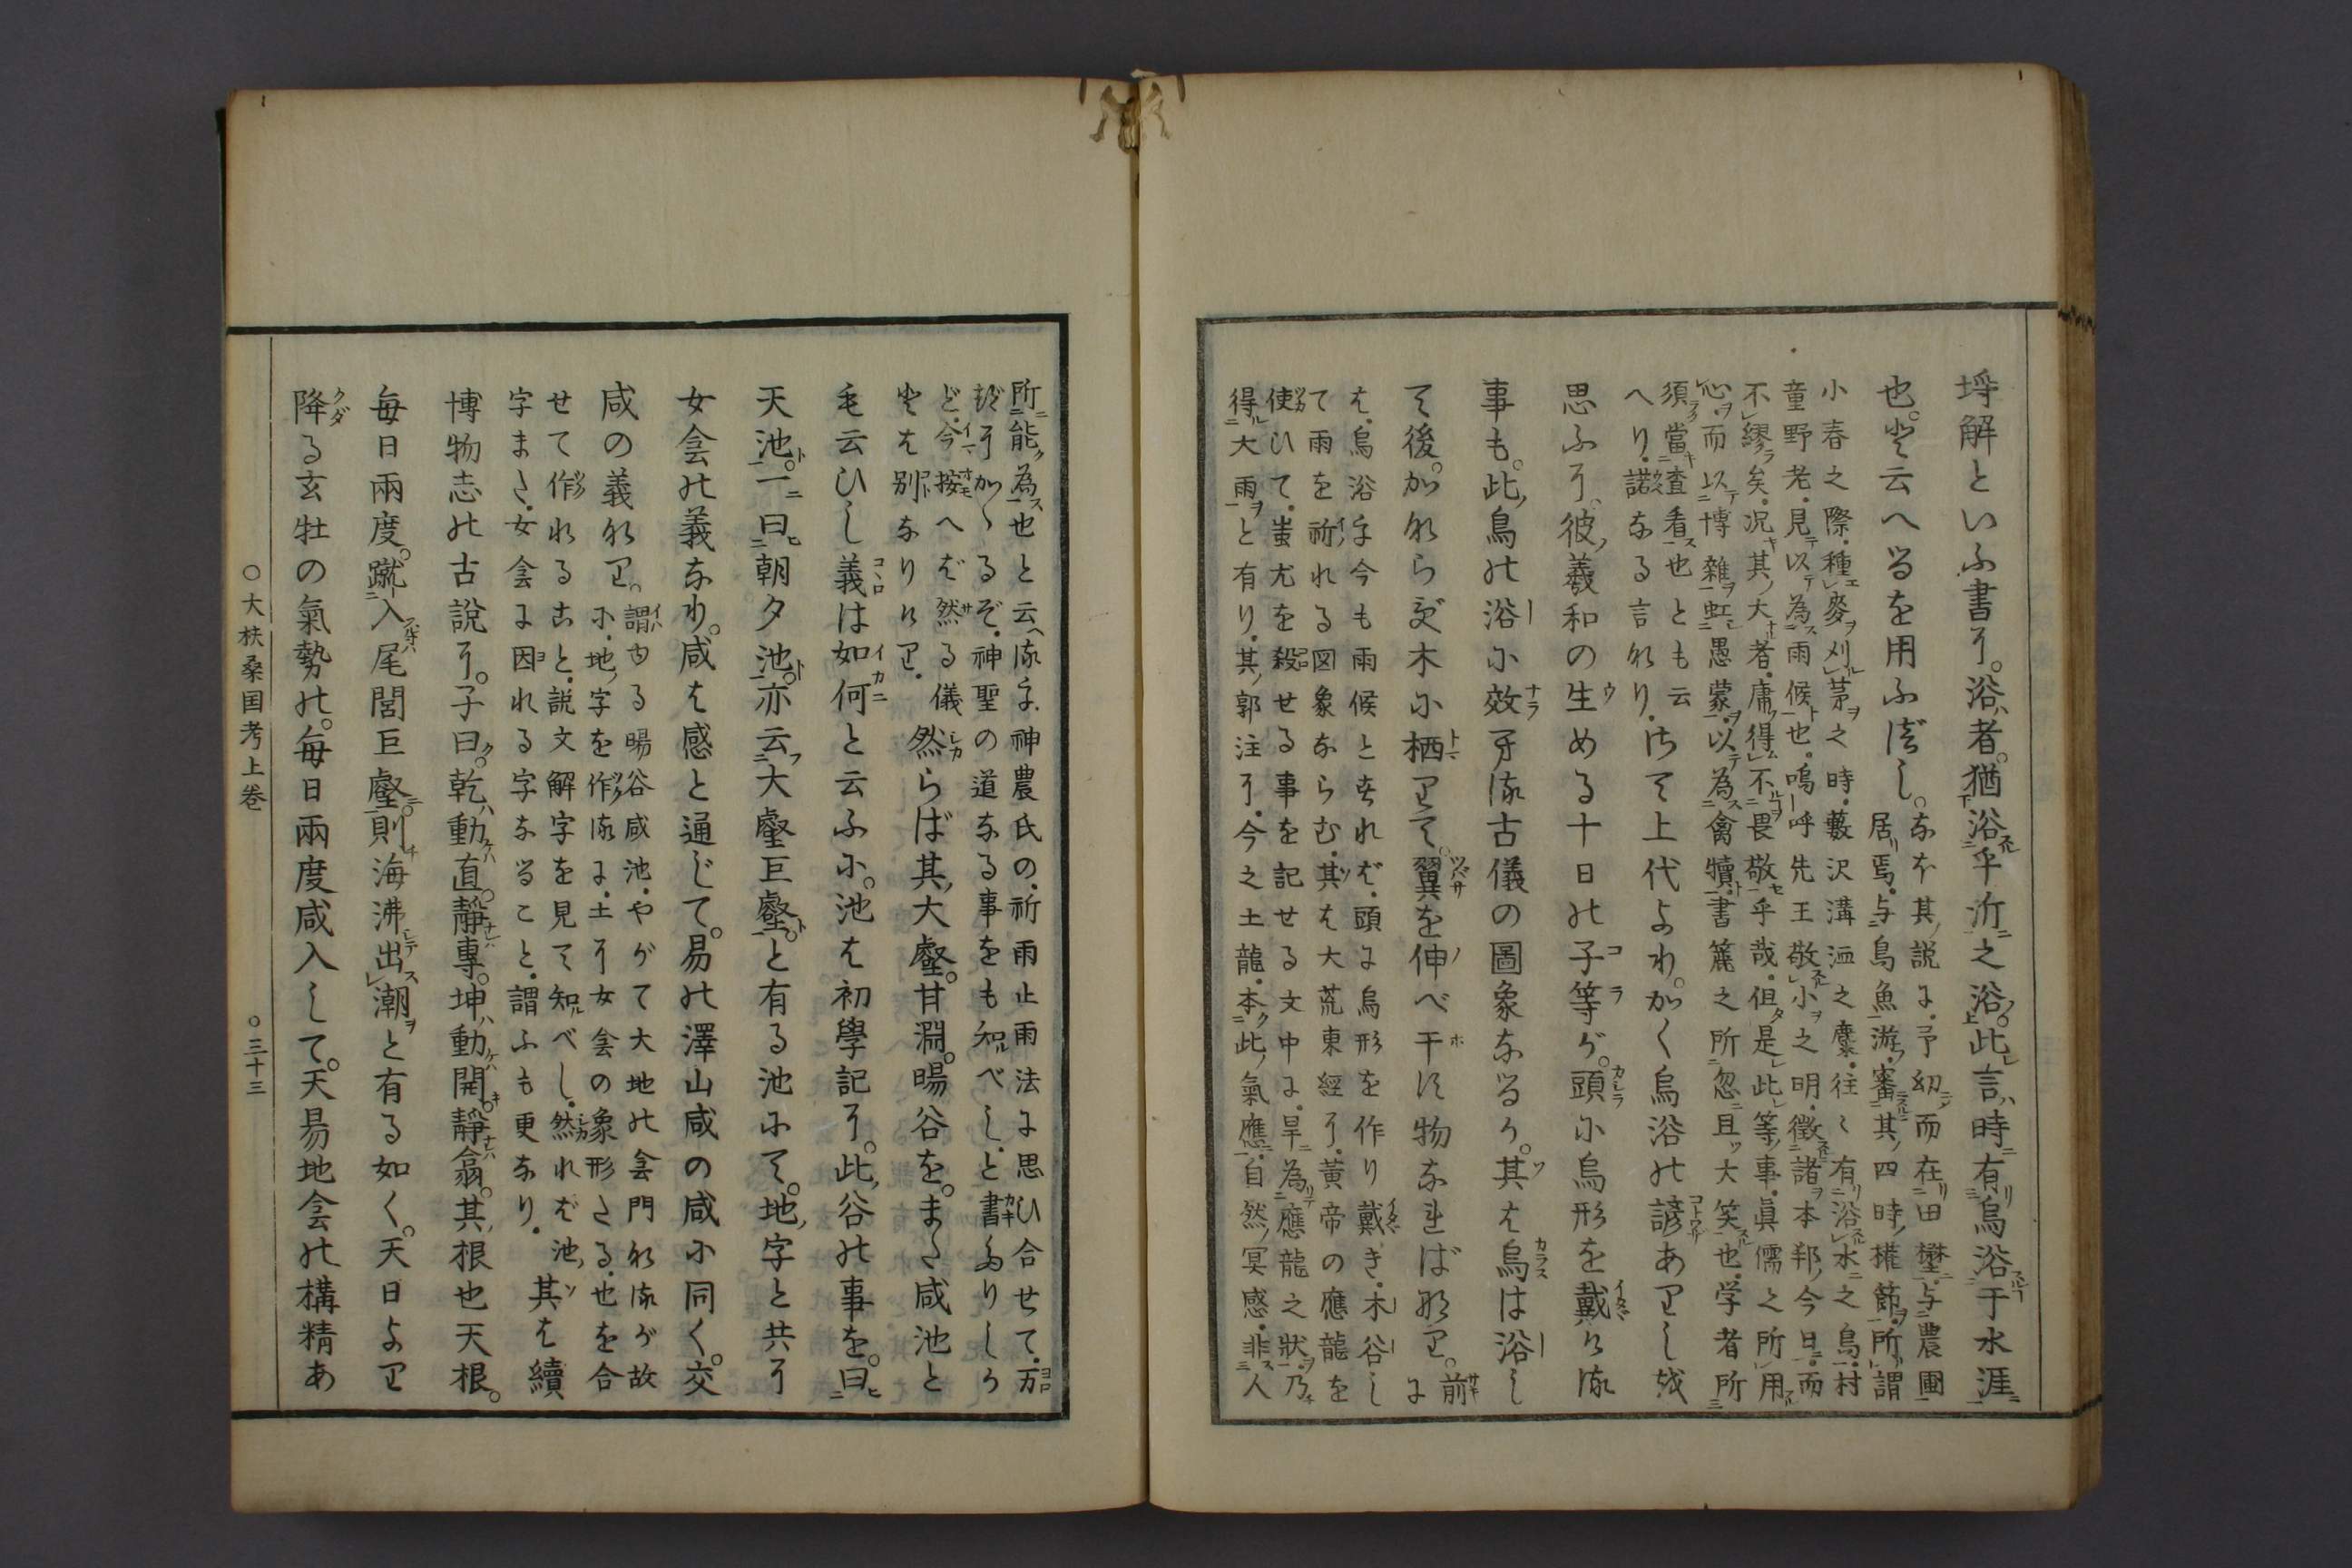 埓解といふ書に。浴者。猶浴乎沂之浴。此言時有烏浴于水涯
也。と云へるを用ふべし。なほ其説に。予幼而在田野。与農圃
居焉。与鳥魚游。審其四時権節。所謂
小春之際。種麥刈茅之時。藪沢溝洫之麋。往々有浴水之烏。村
童野老。見以為雨候也。嗚呼先王敬小之明。徴諸本邦今日。而
不繆矣。況其大者。庸得不畏敬乎哉。但是此等事。眞儒之所用
心。而以博雜虹愚蒙。以為禽犢。書簏之所忽。且大笑也。学者所
須當査看也とも云
へり。諾なる言なり。さて上代より。かく烏浴の諺ありし故
思ふに、彼羲和の生める十日の子等が。頭に烏形を戴ける
事も。此鳥の浴に效ふる古儀の圖象なるか。其は烏は浴し
て後。かならず木に栖りて。翼を伸べ干す物なれば也。前に
は。烏浴を今も雨候とすれば。頭に烏形を作り戴き。木谷し
て雨を祈れる図象ならむ。其は大荒東經に。黄帝の應龍を
使ひて。蚩尤を殺せる事を記せる文中に。旱為應龍之狀。乃
得大雨と有り。其郭注に。今之土龍。本此。氣應。自然冥感。非人
所能為也と云へるを。神農氏の。祈雨止雨法に思ひ合せて。万
づにかゝるぞ。神聖の道なる事をも知べし。と書たりしか
ど。今按へば然る儀
とは別なりけり。然らば其大壑。甘淵。暘谷を。また咸池と
も云ひし義は如何と云ふに。池は初學記に。此谷の事を。曰
天池。一曰朝夕池。亦云大壑巨壑。と有る池にて。地字と共に
女会の義なり。咸は感と通じて。易の澤山咸の咸に同く。交
咸の義なり。謂ゆる暘谷咸池。やがて大地の会門なるが故
に。地字を作るに。土に女会の象形たる。也を合
せて作れること。説文解字を見て知べし。然れば池
字また。女会に因れる字なること。謂ふも更なり。其は續
博物志の古說に。子曰。乾動直。靜專。坤動闢。靜翕。其根也天根。
毎日兩度。蹴入尾閭巨壑。則海沸出潮と有る如く。天日より
降る玄牡の氣勢の。毎日兩度咸入して。天昜地会の構精あ
○大扶桑国考上巻
○三十三